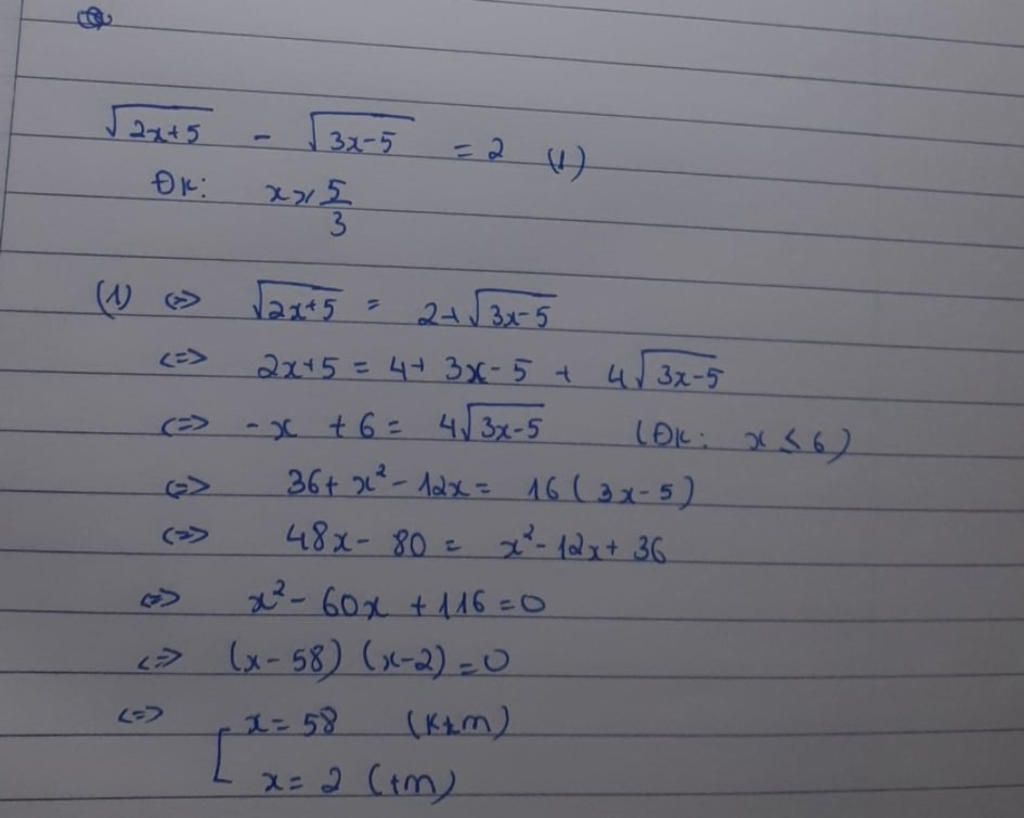 √(2x+5) - √(3x-5) = 2 (1)
ĐK: x ≥ 5/3
(1) <=> √(2x+5) = 2+√(3x-5)
<=> 2x+5 = 4+ 3x-5 + 4√(3x-5)
<=> -x + 6 = 4√(3x-5) (ĐK: x ≤ 6)
<=> 36+ x² - 12x = 16(3x-5)
<=> 48x - 80 = x² - 12x + 36
<=> x² - 60x + 116 = 0
<=> (x-58) (x-2) = 0
<=> [ x = 58 (ktm)
x = 2 (tm)